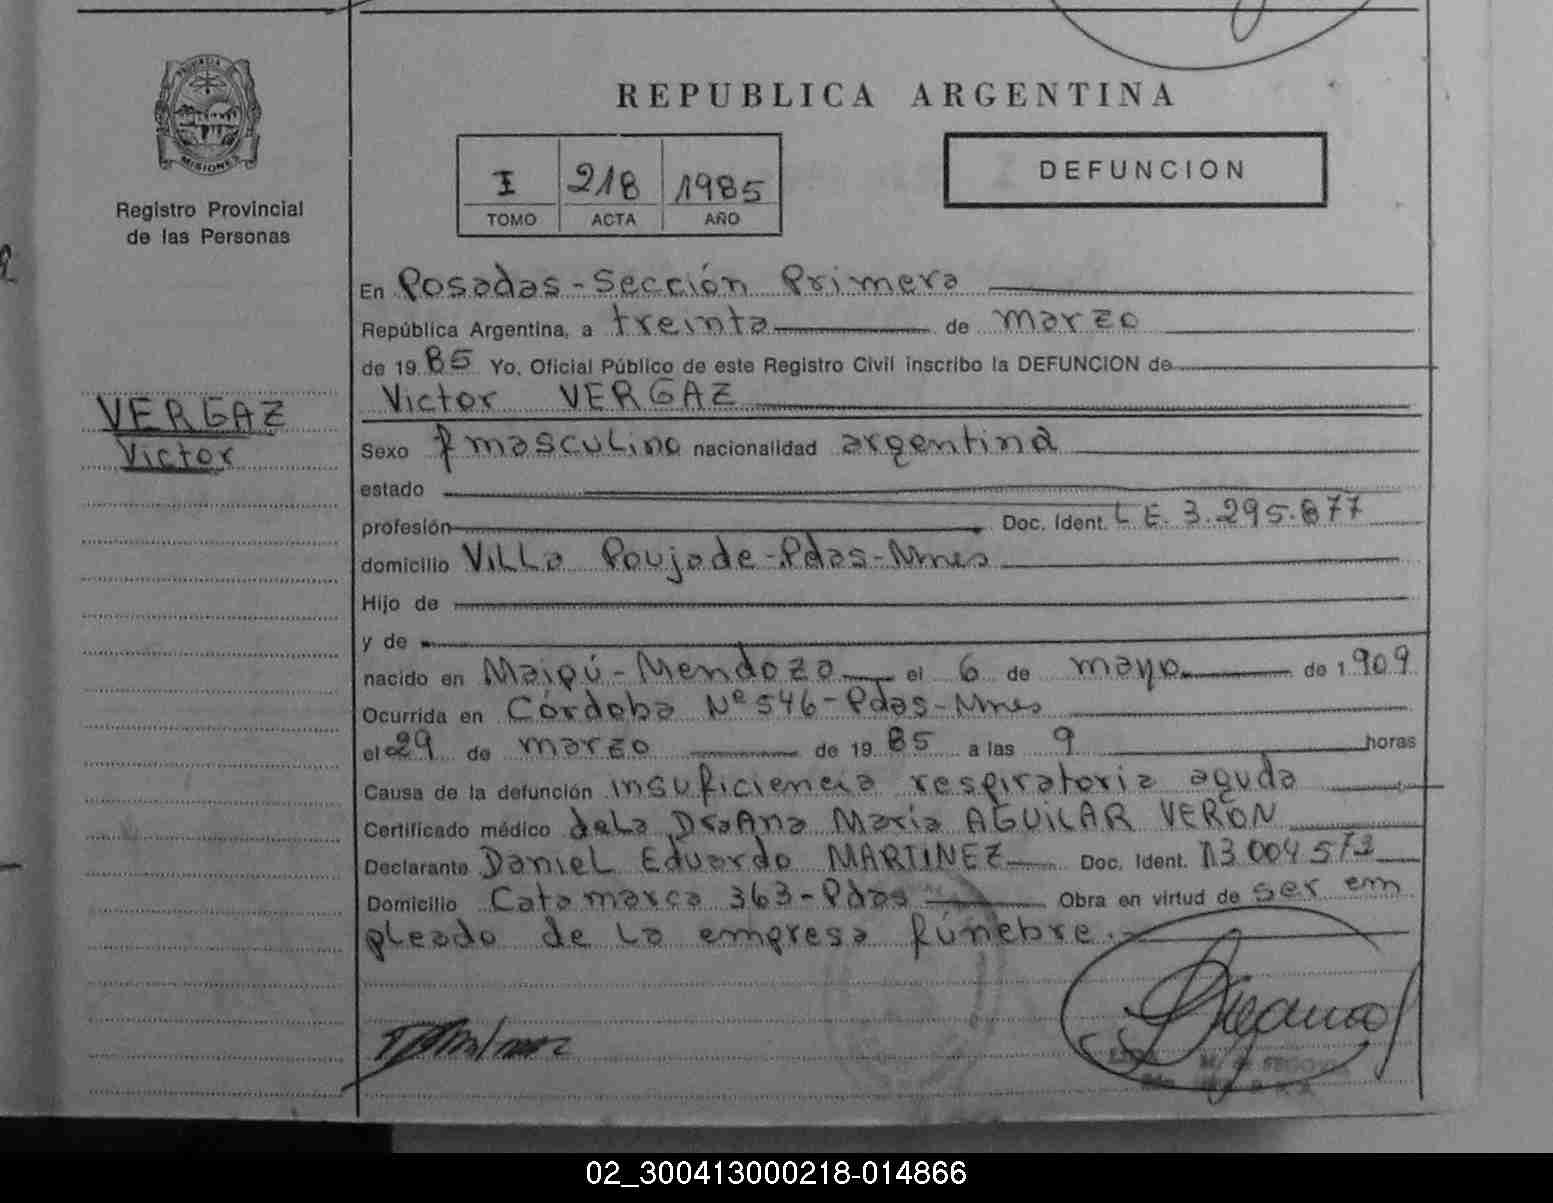 PROVINCIA
MISIONES
Registro Provincial
de las Personas
VERGAZ
Victor
REPUBLICA ARGENTINA
I 218 1985
TOMO ACTA AÑO
DEFUNCION
En Posadas - Sección Primera
República Argentina, a treinta de marzo
de 19 85 Yo, Oficial Público de este Registro Civil inscribo la DEFUNCION de
Victor VERGAZ
Sexo masculino nacionalidad argentina
estado
profesión Doc. Ident. L E. 3.295.877
domicilio Villa Poujade - Pdas - Mnes
Hijo de
y de
nacido en Maipú - Mendoza el 6 de mayo de 1 909
Ocurrida en Córdoba Nº 546 - Pdas - Mnes
el 29 de marzo de 19 85 a las 9 horas
Causa de la defunción insuficiencia respiratoria aguda
Certificado médico de La Dra Ana María AGUILAR VERON
Declarante Daniel Eduardo MARTINEZ Doc. Ident. 13 004 573
Domicilio Catamarca 363 - Pdas Obra en virtud de ser em
pleado de la empresa fúnebre.
02_300413000218-014866